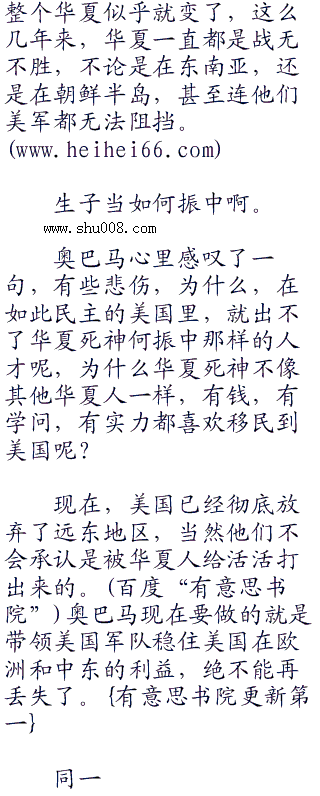 整个华夏似乎就变了，这么
几年来，华夏一直都是战无
不胜，不论是在东南亚，还
是在朝鲜半岛，甚至连他们
美军都无法阻挡。
(www.heihei66.com)
生子当如何振中啊。
www.shu008.com
奥巴马心里感叹了一
句，有些悲伤，为什么，在
如此民主的美国里，就出不
了华夏死神何振中那样的人
才呢，为什么华夏死神不像
其他华夏人一样，有钱，有
学问，有实力都喜欢移民到
美国呢?
现在，美国已经彻底放
弃了远东地区，当然他们不
会承认是被华夏人给活活打
出来的。(百度“有意思书
院”)奥巴马现在要做的就是
带领美国军队稳住美国在欧
洲和中东的利益，绝不能再
丢失了。{有意思书院更新第
一}
同一